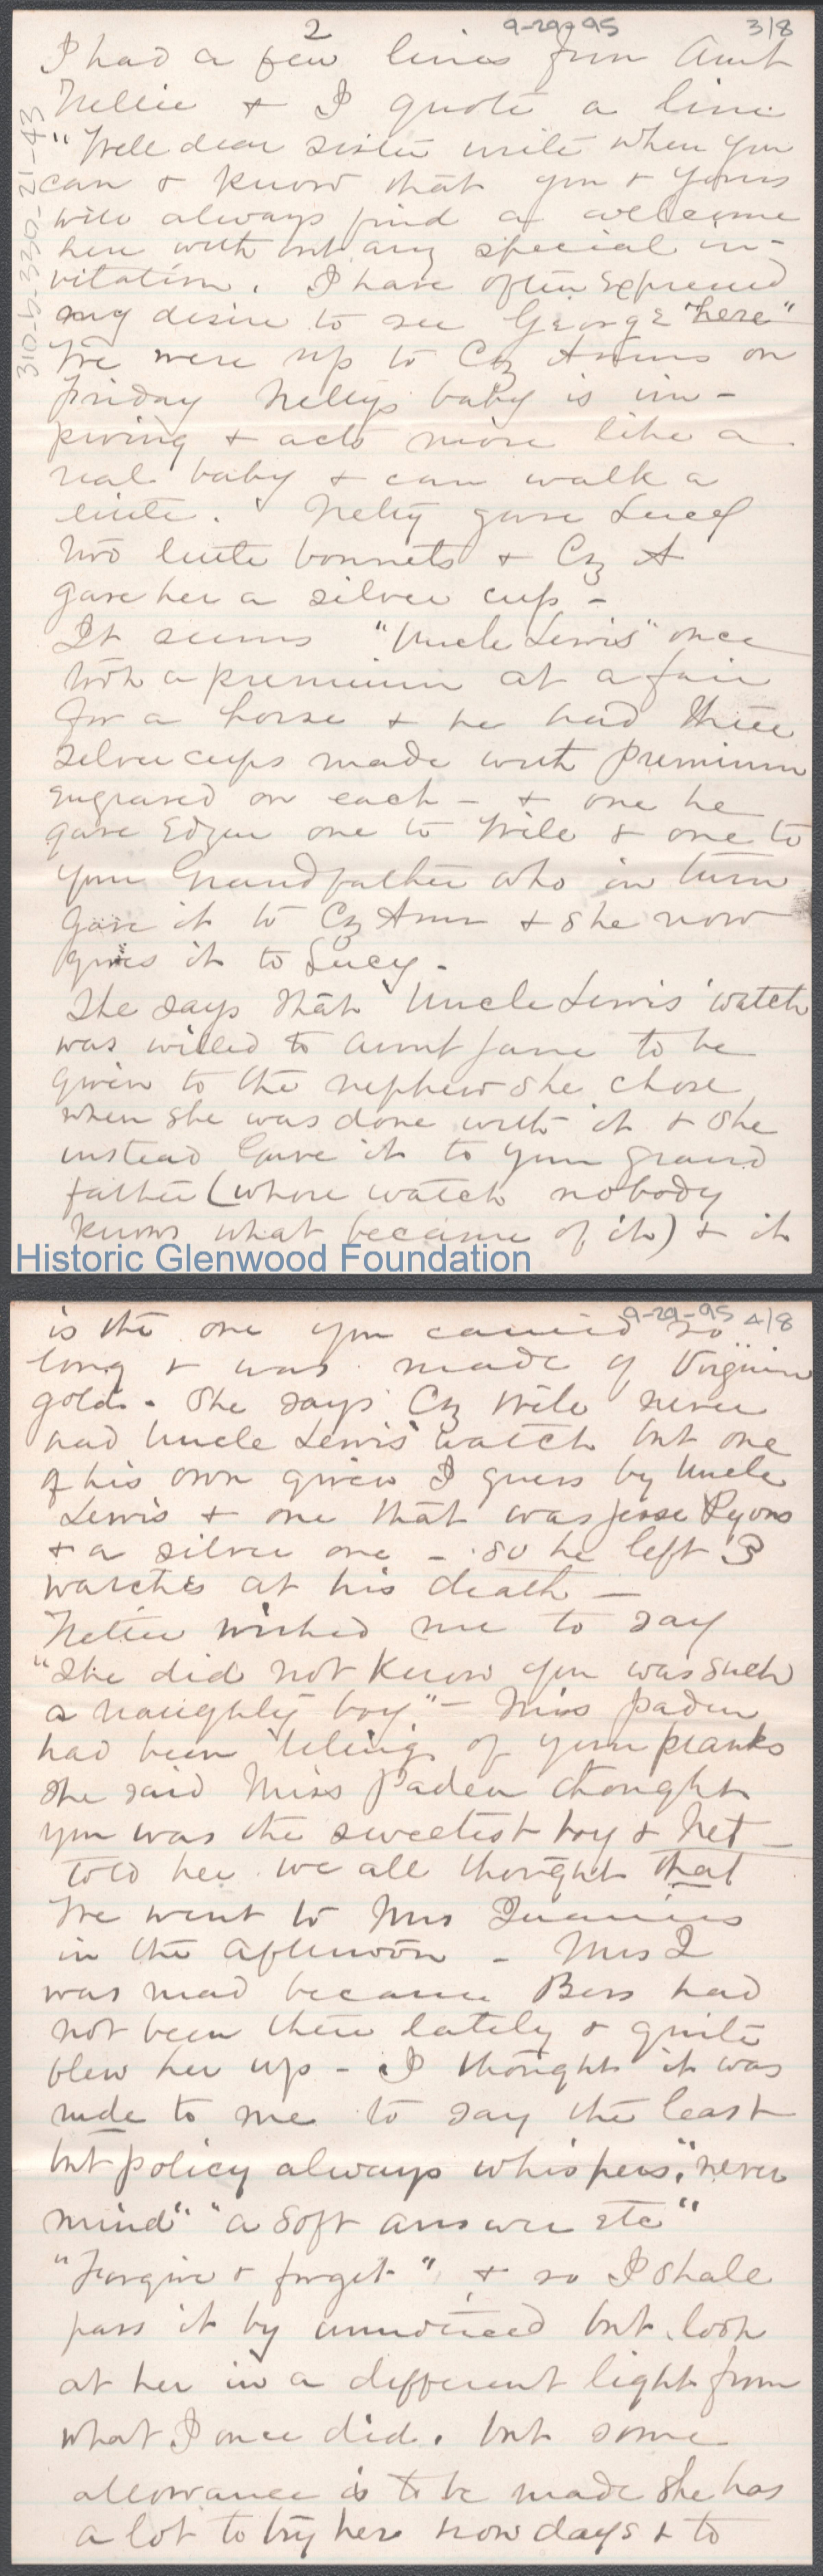 2 9-29-95 3/8
I had a few lines from Aunt
Nellie & I quote a line
"Well dear sister write when you
can & know that you & yours
will always find a welcome
here with out any special in-
vitation. I have often expressed
my desire to see George "here"
We were up to Cz Anns on
Friday Nellys baby is im-
proving & acts more like a
real baby & can walk a
little. Nelly gave Lucy
two little bonnets & Cz A
gave her a silver cup -
It seems "Uncle Lewis" once
took a premium at a fair
for a horse & he had three
silver cups made with premium
engraved on each - & one he
gave Edgar one to Will & one to
your Grandfather who in turn
gave it to Cz Ann & she now
gives it to Lucy -
She says that Uncle Lewis' watch
was willed to Aunt Jane to be
given to the nephew she chose
when she was done with it & she
instead gave it to your grand
father (whose watch nobody
knows what became of it) & it
310-b-330-21-43
Historic Glenwood Foundation
9-29-95 4/8
is the one you carried so
long & was made of Virginia
gold - She says Cz Will never
had Uncle Lewis' watch but one
of his own given I guess by Uncle
Lewis & one that was Jesse Ryons
& a silver one - so he left 3
watches at his death -
Nettie wished me to say
"She did not know you was such
a naughty boy" - Miss Paden
had been telling of your pranks
She said Miss Paden thought
you was the sweetest boy & Net -
told her we all thought that
We went to Mrs
in the afternoon - Mrs I
was mad because Bess had
not been there lately & quite
blew her up - I thought it was
rude to me to say the least
but policy always whispers, "never
mind" "a soft answer etc"
"Forgive & forget" & so I shall
pass it by unnoticed but look
at her in a different light from
what I once did. but some
allowance is to be made she has
a lot to try her now days & to